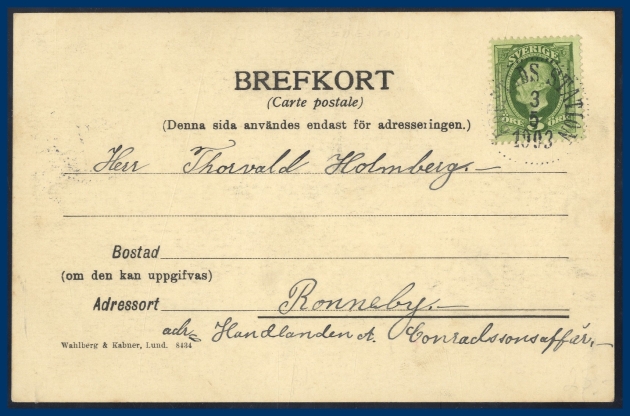 BREFKORT
(Carte postale)
(Denna sida användes endast för adresseringen.)
SVERIGE
5
ÖRE ÖRE
DS. STATION
3
5
1903
Herr Thorvald Holmberg.–
Bostad
(om den kan uppgifvas)
Adressort Ronneby.–
adr. Handlanden A. Conradssons affär.–
Wahlberg & Kabner, Lund. 8434